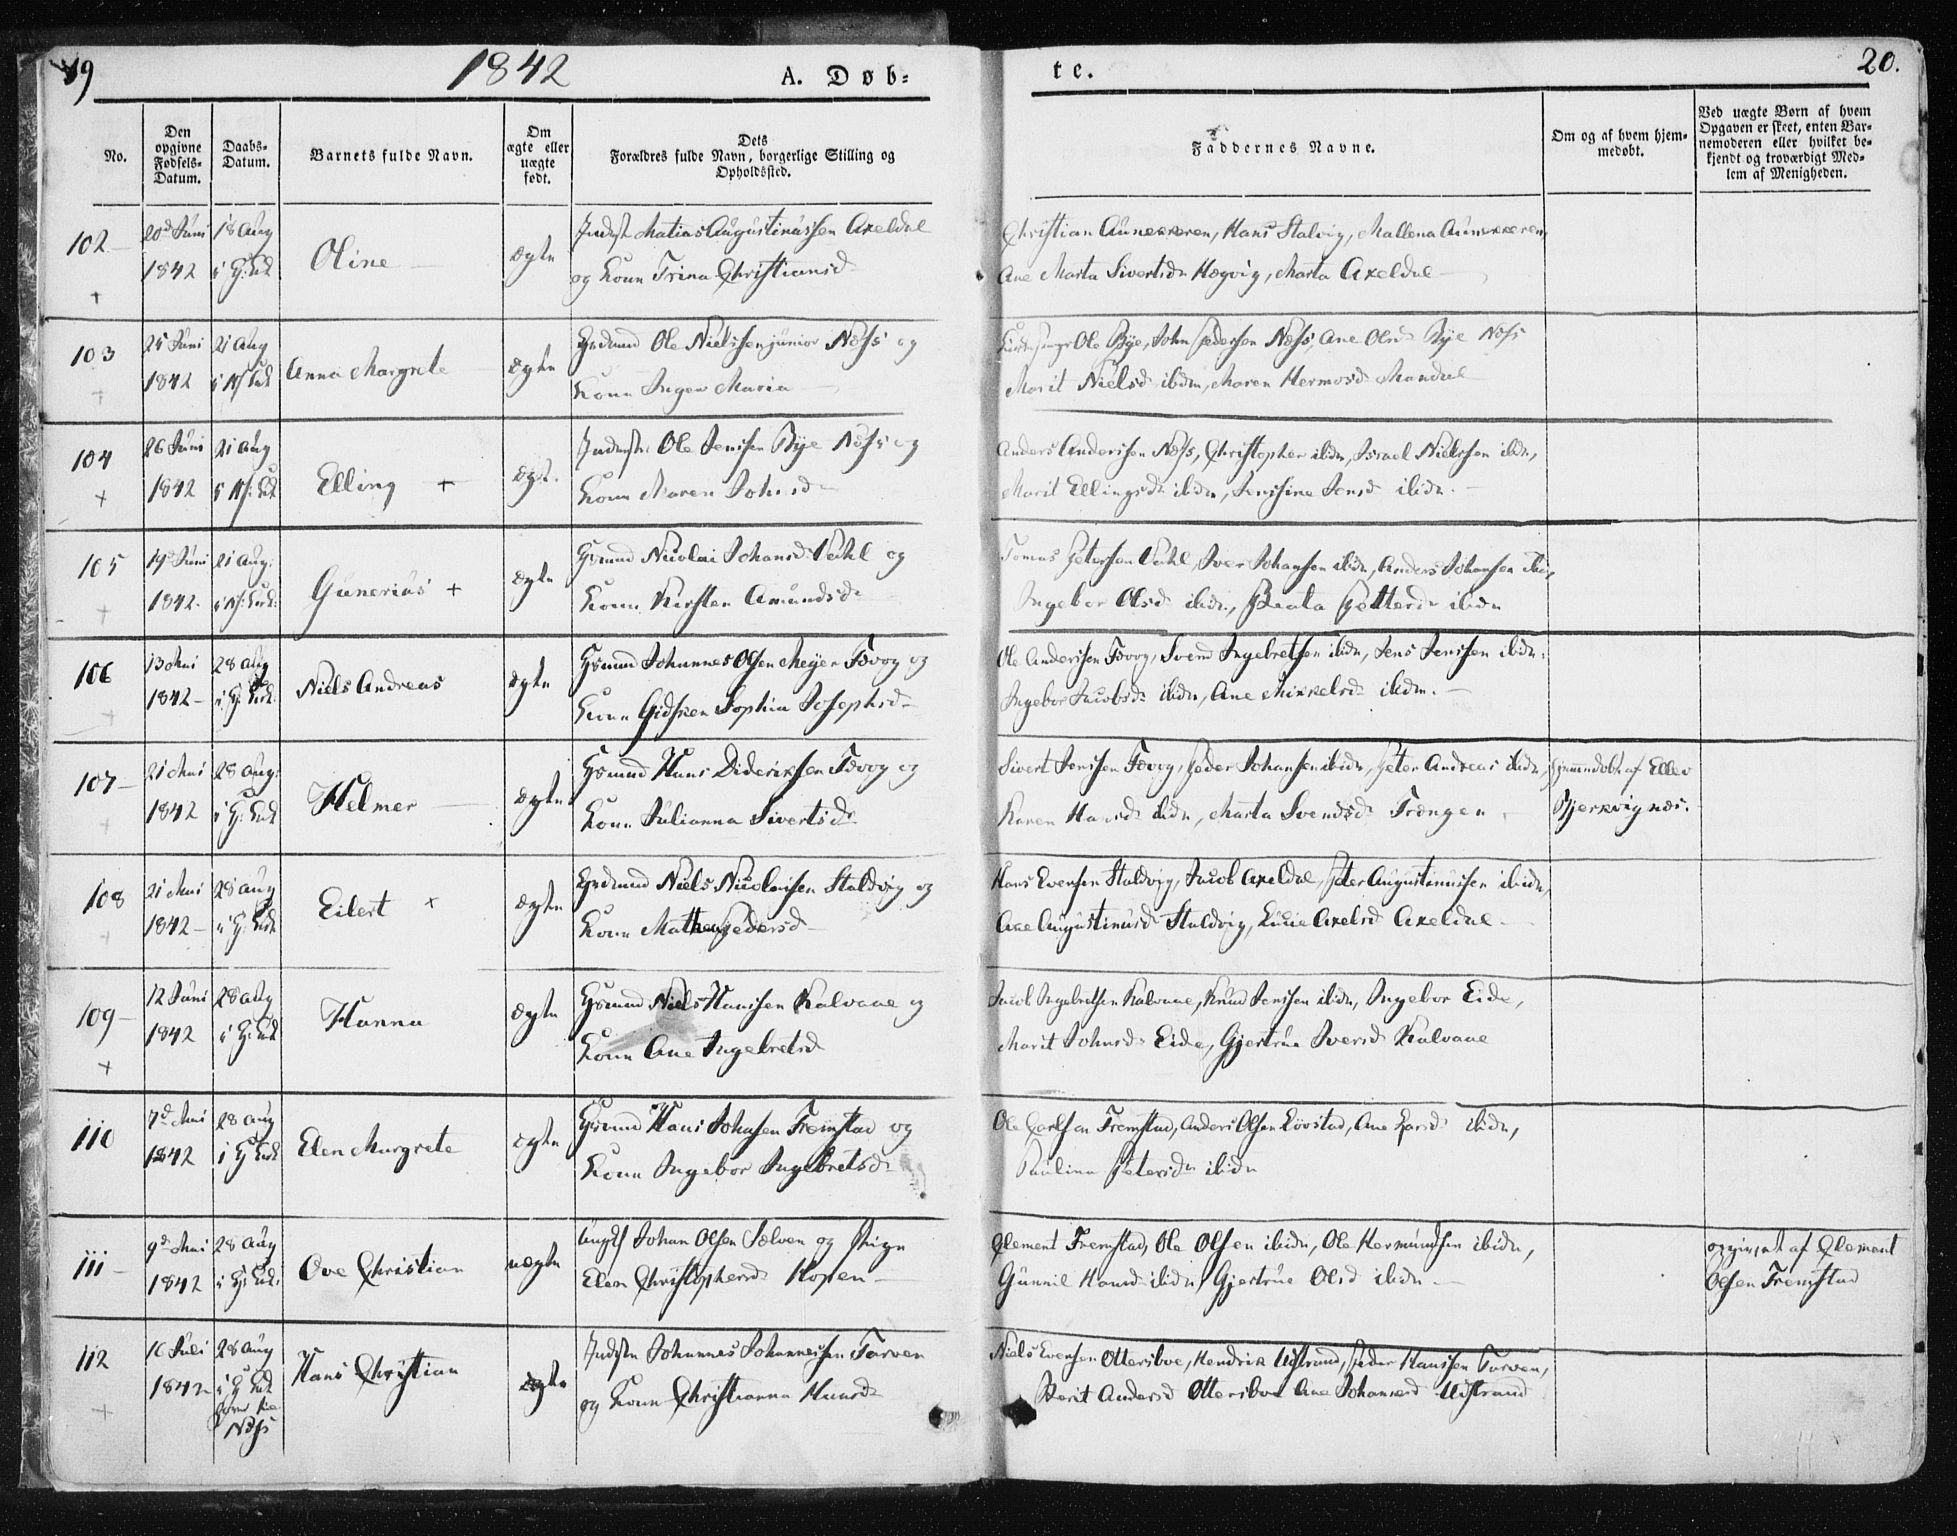 19
1842
A. Døb=
te.
20.
No.
Den
opgivne
Fødsels-
Datum.
Daabs-
Datum.
Barnets fulde Navn.
Om
ægte eller
uægte
født.
Dets
Forældres fulde Navn, borgerlige Stilling og
Opholdssted.
Faddernes Navne.
Om og af hvem hjem-
medøbt.
Ved uægte Børn af hvem
Opgaven er skeet, enten Bar-
nemoderen eller hvilket be-
kjendt og troværdigt Med-
lem af Menigheden.
102 20d Juni 18 Aug Oline ægte Matias Augustinussen Axeldal
1842 og Kone Trina Christiansd
Christian Aunekeren, Hans Stalvig, Mallena Aunekeren,
Ane Marta Sivertsdr Hegvig, Marta Axeldal
103 25 Juni 21 Aug Anna Margrete ægte Ole Nielssen junior Næss og
1842 Kone Inger Maria
Ole Bye, John Pedersen Næss, Ane Olsd Bye Næss
Marit Nielsd ibidm, Maren Hermosd Mandal
104 26 Juni 21 Aug Elling + ægte Ole Jenssen Bye Næss og
1842 Kone Maren Johnsd
Anders Anderssen Næss, Christopher ibidm, Israel Nielssen ibidm,
Marit Ellingsd ibidm, Jenssine Jensd ibidm.
105 19d Juni 21 Aug: Gunerius + ægte Gaardmand Nicolai Johansd og
1842. Kone Kirsten Amundsd
Tomas Petersen, Iver Johansen ibidm, Anders Johansen ibidm,
Ingebor Olsd ibidm, Beata Pettersd ibidm
106 13 Mai 28 Aug Niels Andreas ægte Johannes Olsen Meyer Tevog og
1842 Kone Gidsken Sophia Josephsd
Ole Anderssen Tevog, Svend Ingebretsen ibidm, Jens Jenssen ibidm,
Ingebor Jacobsd ibidm, Ane Mikkelsd ibidm.
107 21 Mai 28 Aug: Helmer ægte Hans Dideriksen Tevog og
1842 Kone Julianna Sivertsd
Sivert Jenssen Tevog, Peder Johansen ibidm, Peter Andreas ibidm, Hjemmedøbt af Ellev
Karen Hansd ibidm, Marta Svendsd Trongen Bjerkvignes.
108 21 Mai 28 Aug Eilert + ægte Niels Nicolaisen Staldvig og
1842 Kone Mathea Pedersd
Hans Evensen Staldvig, Jacob Axeldal, Peter Augustinussen ibidm,
Ane Augustinusd Staldvig, Lucie Axelsd Axeldal
109 12 Juni 28 Aug Hanna ægte Niels Hanssen Kalvaae og
1842 Kone Ane Ingebretsd
Jacob Ingebretsen Kalvaae, Knud Jenssen ibidm, Ingebor Eide,
Marit Johnsd Eide, Gjertrue Iversd Kalvaae
110 7d Mai 28 Aug Elen Margrete ægte Hans Johnsen Fremstad og
1842 Kone Ingebor Ingebretsd
Ole Carlsen Fremstad, Anders Olsen Løvstad, Ane Larsd ibidm,
Paulina Petersd ibidm
111 9d Mai 28 Aug Ove Christian uægte Johan Olsen Selven og Pige
1842 Elen Christophersd Kopen
Clement Fremstad, Ole Olsen ibidm, Ole Hermundsen ibidm,
Gunnil Hansd ibidm, Gjertrue Olsd ibidm.
opgivet af Clement
Olsen Fremstad
112 16 Juli 28 Aug Hans Christian ægte Johannes Johannessen Tarven
1842 og Kone Christianna Hansd
Næss
Niels Evensen Ottersboe, Hendrik Udstrand, Peder Hanssen Tarven,
Berit Andersd Ottersboe Ane Johansd Udstrand